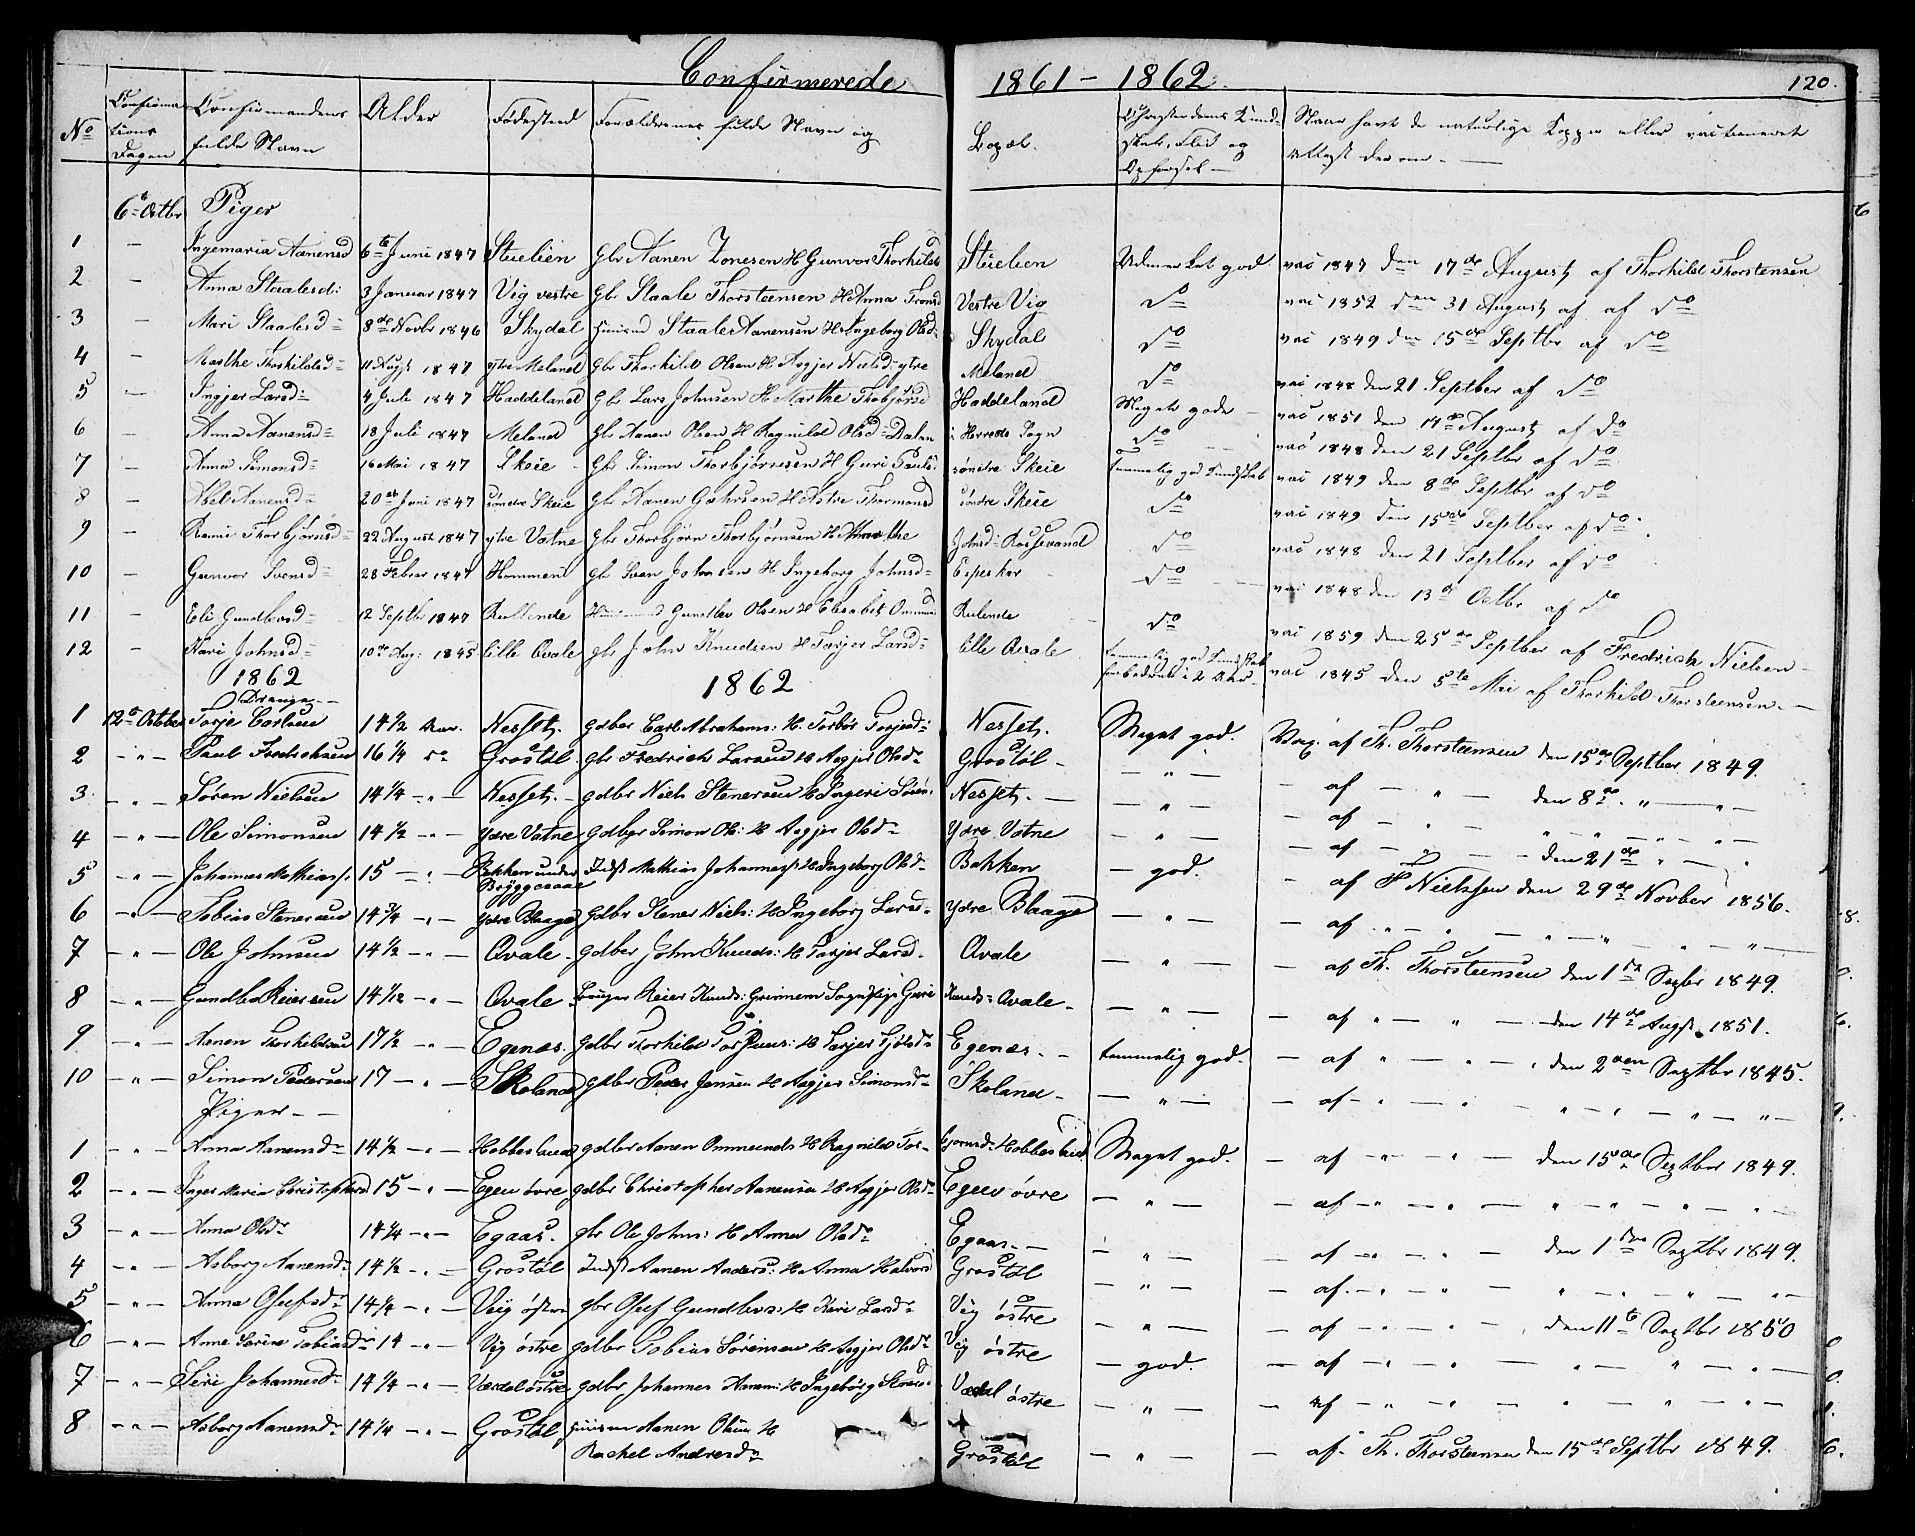 Confirmerede 1861 - 1862. 120.
No Confirmationsdagen Confirmandens fulde Navn Alder Fødested Forældrenes fulde Navn og Bopæl. Christendoms Kundskab, Flid og Opførsel - Naar havt de naturlige Kopper eller vaccineret Attest derom. -
6te Octbr Piger
1 - Ingemaria Aanensd 6te Juni 1847 Stuelien Gbr Aanen Zonesen H Gunvor Thorkilds Stuelien Udmærket god vac 1847 den 17de August af Thorkild Thorstensen
2 - Anna Staalesd: 3 Januar 1847 Vig vestre Gbr Staale Thorsteensen H Anna Tronsd Vestre Vig do vac 1852 den 31 August af af do
3 - Mari Staalesd 8de Novbr 1846 Skydal Huusmd Staale Aanensen H Ingeborg Olsd Skydal do vac 1849 den 15de Septbr af do
4 - Marthe Thorkildsd 11 Augst 1847 ytre Meland Gbr Thorkild Olsen H Aagjer Nielsd ytre Meland do vac 1848 den 21 Septber af do
5 - Ingjer Larsd 4 Juli 1847 Haddeland Gbr Lars Johnsen H Marthe Thobjørsd Haddeland Meget gode - vac 1851 den 14de August af do
6 - Anna Aanensd 18 Juli 1847 Meland Gbr Aanen Olsen H Ragnild Olsd Dalen i Herreds Sogn do vac 1848 den 21 Septber af do
7 - Anna Simonsd 16 Mai 1847 Skeie Gbr Simon Thorbjørnsen H Guri Pauls: søndre Skeie Temmelig god Kundskab vac 1849 den 8de Septbr af do
8 - Abel Aanensd 20de Juni 1847 søndre Skeie Gbr Aanen H Thormonsd søndre Skeie do vac 1849 den 15de Septber af do
9 - Thorbjørnsd 22 August 1847 ytre Vatne Gbr Thorbjørn Thorbjørnsen H Marthe Johnsd Rossevand do vac 1848 den 21 Septber af do
10 - Gunvor Svensd 28 Febrar 1847 Hommen Gbr Sven Johnsen H Ingeborg Johnsd Eepesker do vac 1848 den 13de Octbr af do
11 - Eli Gundlevsd 12 Septbr 1847 Gundlev Olsen H Elisabet Ommunds Rulende do vac 1859 den 25de Septber af Fredrick Nielsen
12 - Kari Johnsd 10de Aug: 1845 lille Qvale gbr John Knudsen H Tarjer Larsd lille Qvale temmelig god Kundskab forbedret i 2 Aar - vac 1845 den 5te Mai af Thorkild Thorsteensen. -
1862 1862
Drenge. -
1 12te October Torje Carlsen 14½ Aar. Nesset. gdber Carl Abrahams: H. Torbør Torjesd: Nesset. Meget god. Vac. af Th. Thorsteensen den 15de Septber 1849.
2 - " - Paul Fredrichsen 16¼ do Grostøl gbr Fredrich Larsen H Aagjer Olsd Grostøl - - " - - af - " - den 8de. " - " -
3 - " - Søren Nielsen 14¼ - " - Nesset. - gdbr Niels Stenersen H Ingeri Søren: Nesset. - - " - - af - " - " - " - " -
4 - " - Ole Simonsen 14½ - " - Ydre Vatne gdbgr Simon Ols: H Aagjer Olsd Ydre Vatne - " - - af - " - - den 21de " - " -
5 - " - Johannes Mathiass: 15 - " - Bekken under Bryggesaae Indst Mathias Johanness: H Ingeborg Olsd Bakken - god. - af F Nielssen den 29de Novber 1856.
6 - " - Tobias Stenersen 14¾ - " - Ydre Blaage gdbr Stener Niels: H Ingeborg Larsd - Ydre Blaage - " - - af " - " - " - " -
7 - " - Ole Johnsen 14½ - " - Qvale. gdber John Knuds: H Tarjer Larsd. Qvale - " - - af Th. Thorsteensen den 1ste Septbr 1849.
8 - " - Gundle Reiersen 14 1/12 - " - Qvale Reier Knuds: Grimnem Sogn Pige Guri Knuds: Qvale - - " - - af " - " - den 14de Augst. 1851.
9 - " - Aanen Thorkildsen 17½ - " - Egenæs. gdbr Thorkild H Tarjer Egenæs. - temmelig god. - af " - " - den 2den Septbr 1845.
10 - " - Simon Pedersen 17 - " - Skeland gdbr Peder Jensen H Aagjer Simonsd Skeland - - " - - af - " - " - " - " - " -
Piger - -
1 - " - Anna Aanensd 14½ - " - Hobbesland gdbr Aanen Ommunds H Ragnild Tor- bjørnsd Hobbesland Meget god. - af " - " - den 15de Septbr 1849.
2 - " - Inger Maria Christophersd 15 - " - Egen øvre gdbr Christopher Aanensen H Aagjer Olsd Egen øvre - " - - af - " - " - " - " -
3 - " - Anna Olsd 14¼ - " - Egaas. gbr Ole Johns: H Anna Olsd Egaas. - - " - - af - " - " - den 1ste Septbr 1849.
4 - " - Asborg Aanensd 14½ - " - Grostøl Indst Aanen Anders: H Anna Halvorsd Grostøl - " - - af. - " - " - " - " -
5 - " - Anna Olsd 14¼ - " - Veig østre gbr Gundlevs: H Kari Larsd Vig østre - " - - af - " - " - den 11te Septbr 1850
6 - " - Anne Serine Tobiasd 14 - " - Vig østre gdbr Tobias Sørensen H Aagjer Olsd Vig østre - god. - af - " - " - " - " -
7 - " - Seri Johannesd 14¼ - " - Værdal østre gdbr Johannes Aanen: H Ingebörg Værdal østre - " - - af - " - " - " - " -
8 - " - Asborg Aanensd 14¼ - " - Grostøl Huusm Aanen Olsen H Rachel Andersd Grostøl - " - - af - Th. Thorsteensen den 15de Septbr 1849.